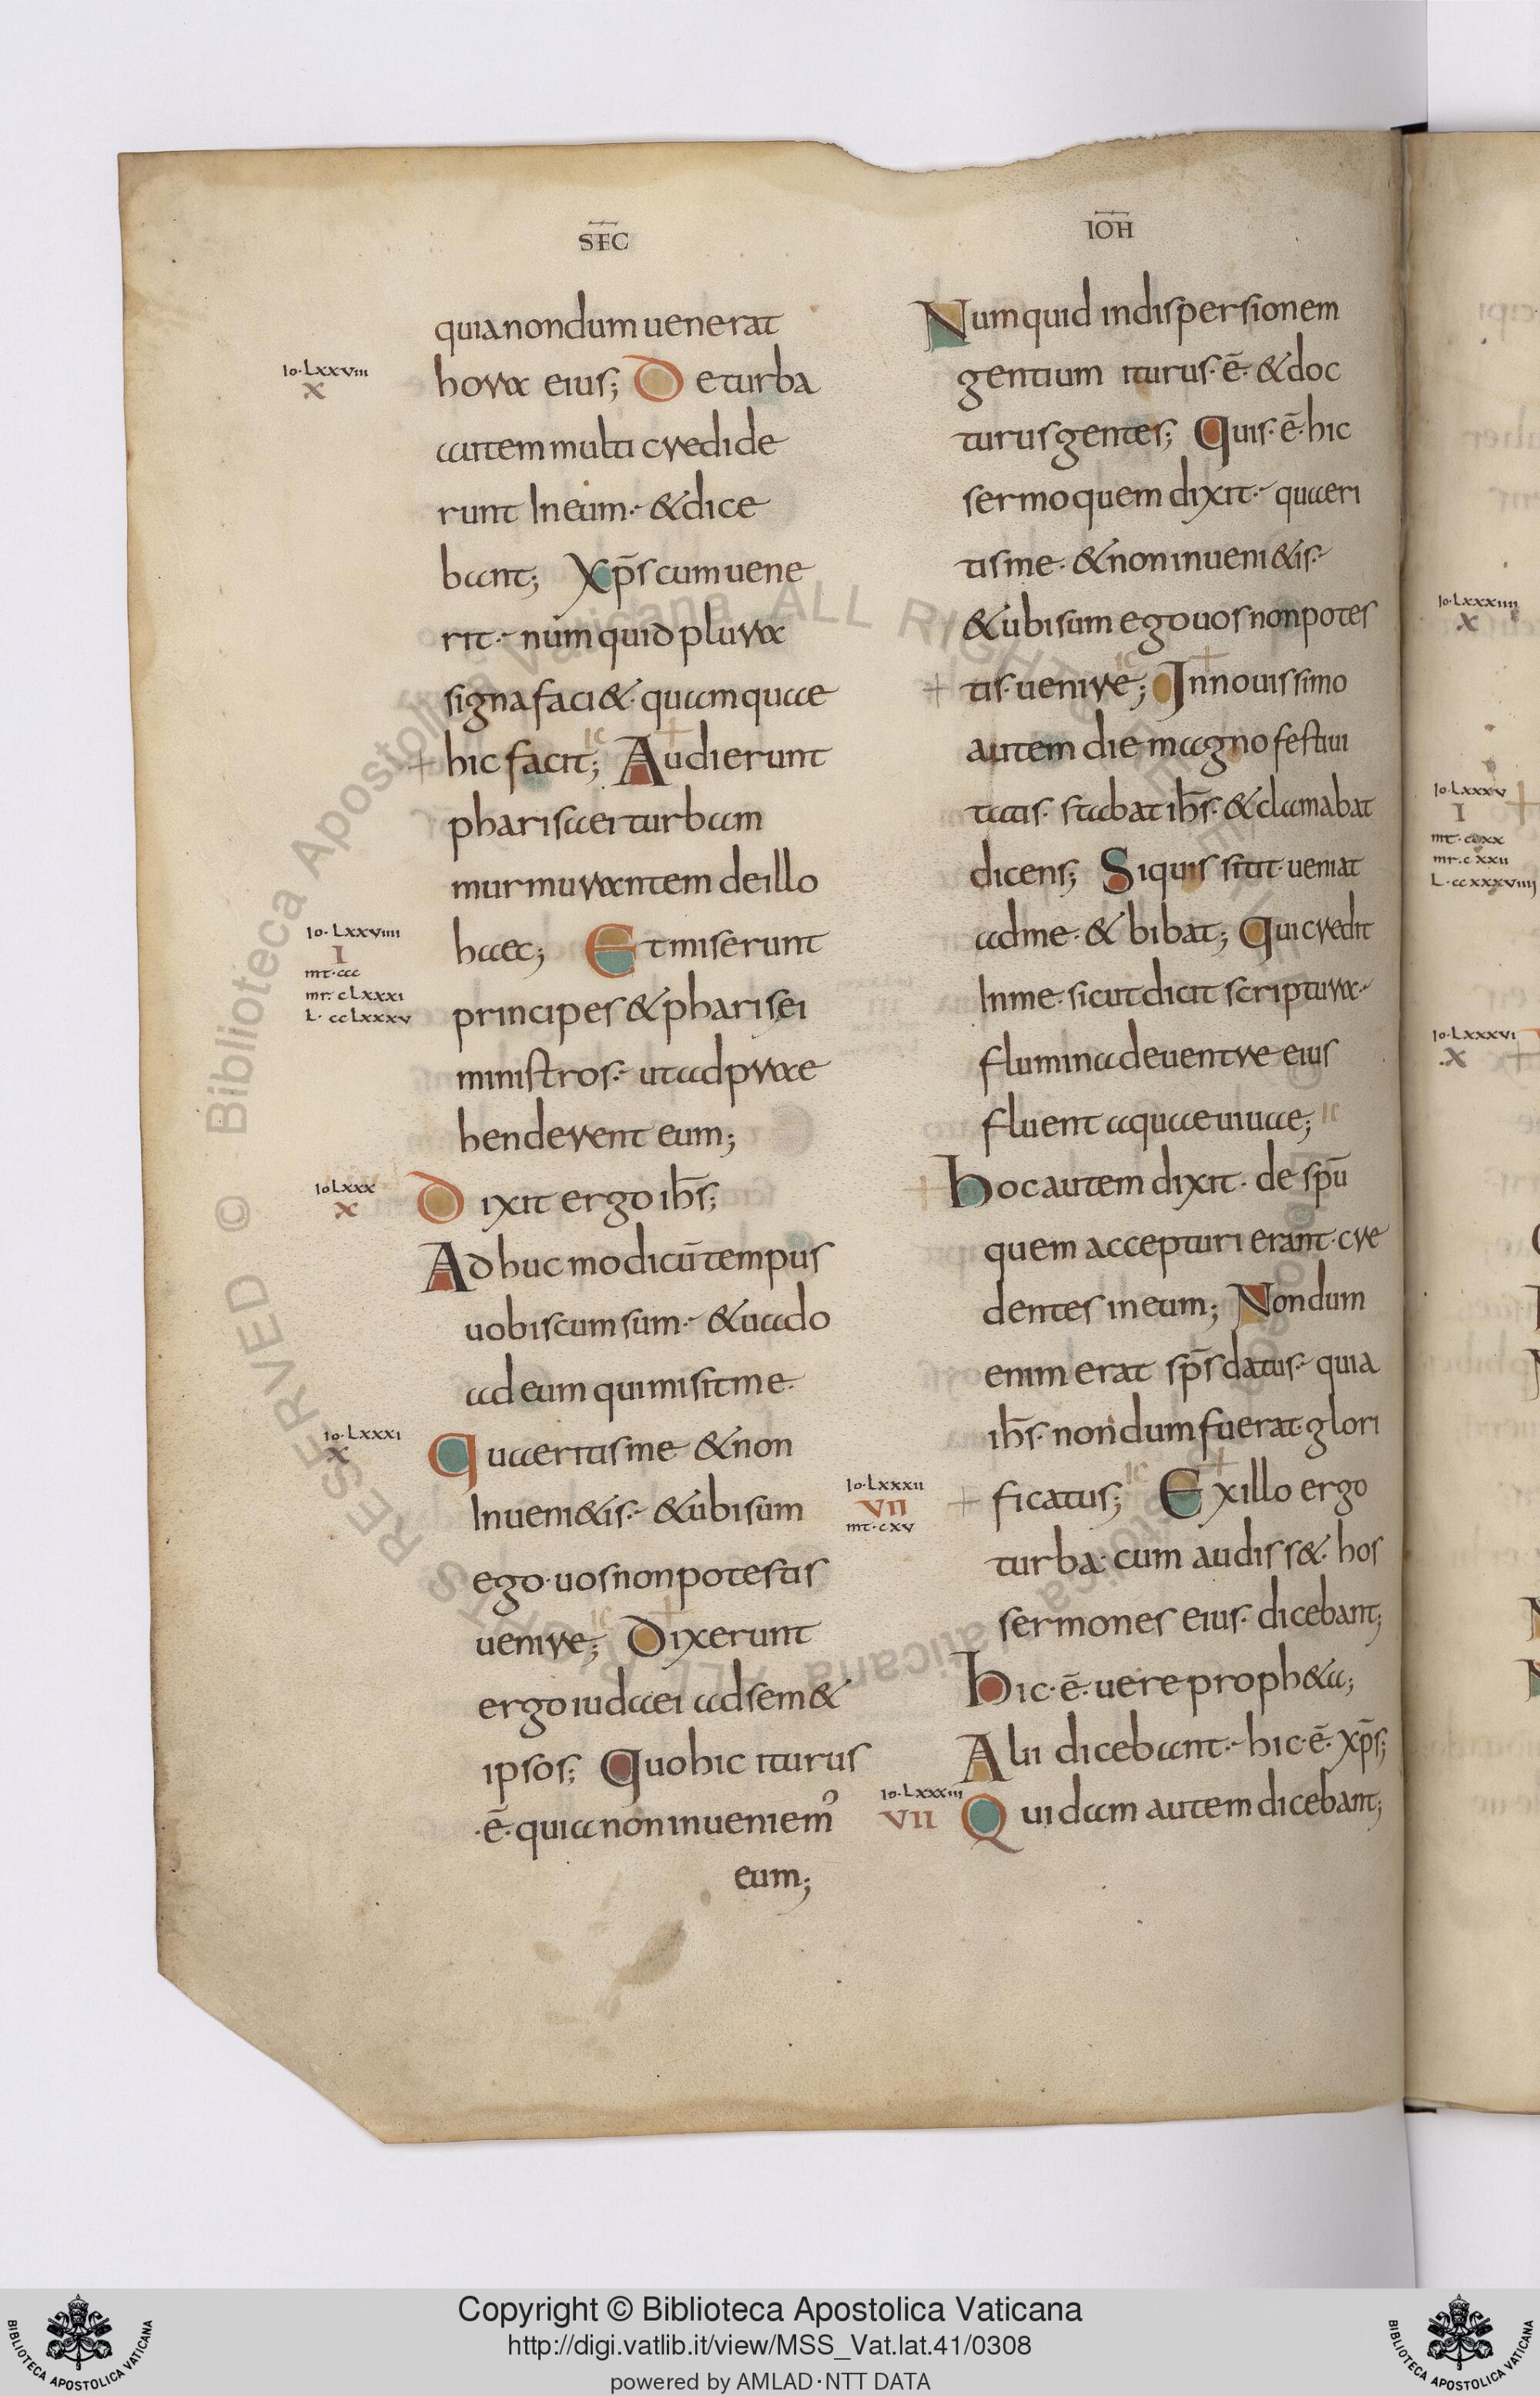 SEC̅
IO̅H
quia nondum uenerat
io·Lxxviii
x
hora eius; De turba
autem multi credide
runt In eum·⁊ & dice
bant; Xp̅s cum uene
rit·⁊ numquid plura
signa faci&· quam quae
ic +
+ hic facit; Audierunt
pharisaei turbam
murmurantem de illo
io·Lxxviiii
I
mt·ccc
mr·cLxxxi
L·ccLxxxv
haec; Et miserunt
principes & pharisei
ministros·⁊ ut adprae
henderent eum;
io Lxxx
x
Dixit ergo ih̅s;
Adhuc modicu̅ tempus
uobiscum sum·⁊ & uado
ad eum qui misit me·
io·Lxxxi
x
Quaeritis me & non
Inueni&is·⁊ & ubi sum
ego· uos non potestis
ic +
uenire; Dixerunt
ergo iudaei ad sem&
ipsos; Quo hic iturus
·e̅· quia non inueniem᾿
eum;
Numquid in dispersionem
gentium iturus· e̅· & doc
turus gentes; Quis· e̅· hic
sermo quem dixit·⁊ quaeri
tis me· & non inueni&is·⁊
& ubi sum ego uos non potes
ic +
+ tis· uenire; In nouissimo
autem die magno festiui
tatis· stabat ih̅s· & clamabat
dicens; Si quis sitit· ueniat
ad me· & bibat; Qui credit
In me· sicut dicit scriptura·⁊
flumina de uentre eius
fluent aquae uiuae; ic
+ hoc autem dixit· de sp̅u
quem accepturi erant· cre
dentes in eum; Nondum
enim erat sp̅s datus·⁊ quia
ih̅s· nondum fuerat· glori
io·Lxxxii
vii
mt·cxv
ic +
+ ficatus; Ex illo ergo
turba· cum audiss&· hos
sermones eius· dicebant;
hic· e̅· uere proph&a;
Alii dicebant·⁊ hic· e̅· xp̅s;
io·Lxxxiii
vii
Quidam autem dicebant;
io·Lxxxiiii
x
io·Lxxxv
I
mt·ccxx
mr·cxxii
L·ccxxxviiii
io·Lxxxvi
·x
Copyright © Biblioteca Apostolica Vaticana
http://digi.vatlib.it/view/MSS_Vat.lat.41/0308
powered by AMLAD·NTT DATA
BIBLIOTECA APOSTOLICA VATICANA
BIBLIOTECA APOSTOLICA VATICANA
© Biblioteca Apostolica Vaticana ALL RIGHTS RESERVED